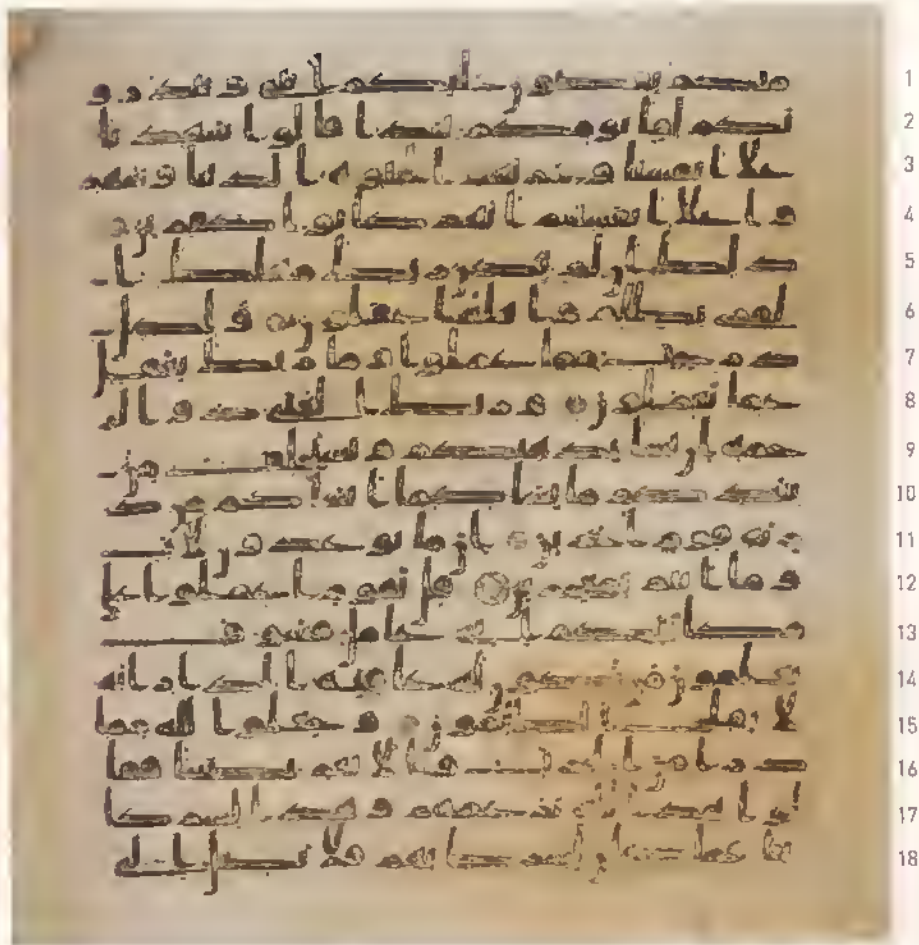 منكم يقصون عليكم ايتى وينذرو
نكم لقا يومكم هذا قالوا شهدنا
على انفسنا وغرتهم الحيوه الدنيا وشهد
وا على انفسهم انهم كانوا كفرين
ذلك ان لم يكن ربك مهلك القر
ى بظلم واهلها غفلون ولكل در
جت مما عملوا وما ربك بغفل
عما يعملون وربك الغنى ذو الر
حمه ان يشا يذهبكم ويستخلف من
بعدكم ما يشا كما انشاكم من ذ
ريه قوم اخرين ان ما توعدون لات
وما انتم بمعجزين قل يقوم اعملوا على
مكانتكم انى عامل فسوف
تعلمون من تكون له عقبه الدار انه
لا يفلح الظلمون وجعلوا لله مما
ذرا من الحرث والانعم نصيبا فقا
لوا هذا لله بزعمهم وهذا لشركا
ينا فما كان لشركايهم فلا يصل الى
1
2
3
4
5
6
7
8
9
10
11
12
13
14
15
16
17
18